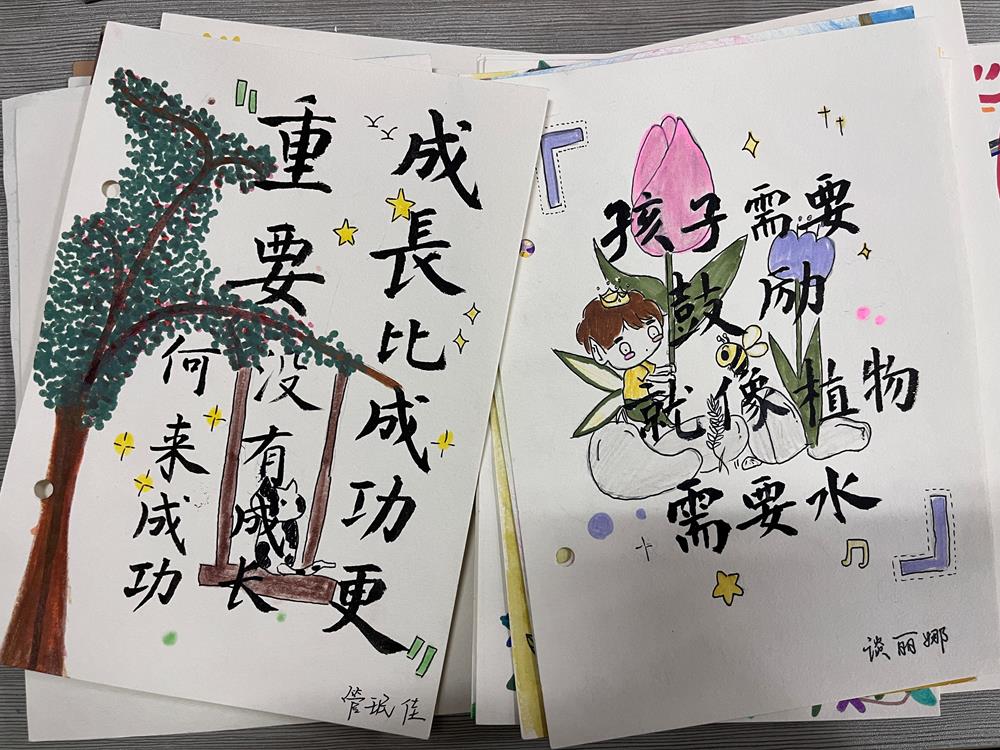 成長比成功更
重要
没有成长
何来成功
管珉佳
孩子需要
鼓励
就像植物
需要水
谈丽娜